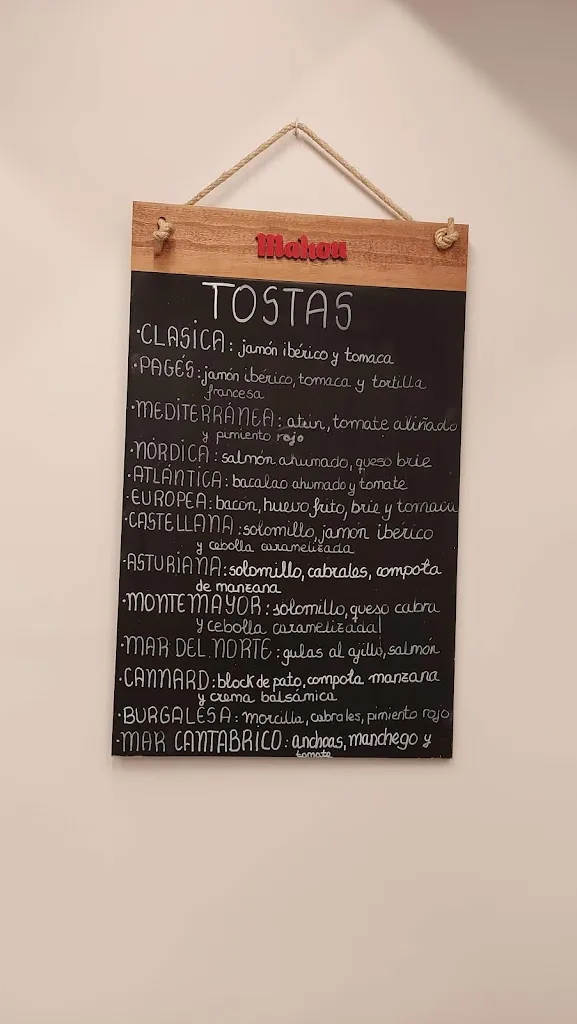 Mahou
TOSTAS
·CLASICA: jamón ibérico y tomaca
·PAGÉS: jamón ibérico, tomaca y tortilla
francesa
·MEDITERRÁNEA: atún, tomate aliñado
y pimiento rojo
·NÓRDICA: salmón ahumado, queso brie
·ATLÁNTICA: bacalao ahumado y tomate
·EUROPEA: bacon, huevo frito, brie y tomaca
·CASTELLANA: solomillo, jamón ibérico
y cebolla caramelizada
·ASTURIANA: solomillo, cabrales, compota
de manzana
·MONTEMAYOR: solomillo, queso cabra
y cebolla caramelizada
·MAR DEL NORTE: gulas al ajillo, salmón
·CANNARD: block de pato, compota manzana
y crema balsámica
·BURGALESA: morcilla, cabrales, pimiento rojo
·MAR CANTABRICO: anchoas, manchego y
tomate